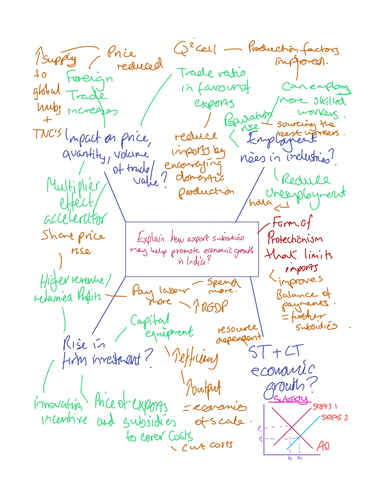 ↑supply
to
global
hubs
+
TNC's
Price
reduced
Foreign
Trade
increases
Q² ceil
Production factors
improved.
Trade ratio
in favour of
exports
Can employ
more skilled
workers.
Reputation
rise
sourcing the
best workers.
Impact on price,
quantity, volume
of trade/
value?
reduce
imports by
encouraging
domestic
production
Employment
rises in industries?
Reduce
Unemployment
India
Multiplier
effect,
accelerator
Share price
rise
Explain how export subsidies
may help promote economic growth
in India?
Form of
Protectionism
that limits
imports
improves
Balance of
payments.
= further
subsidies.
Higher revenue/
retained Profits
Pay labour
more
Spend
more.
↑RGDP
Capital
equipment
resource
dependent
Rise in
firm investment?
↑efficiency
↑output
= economies
of scale.
cut costs
ST + LT
economic
growth?
Innovation
incentive
Price of exports
and subsidies
to cover costs
Subsidy
SRAS 1
SRAS 2
AD